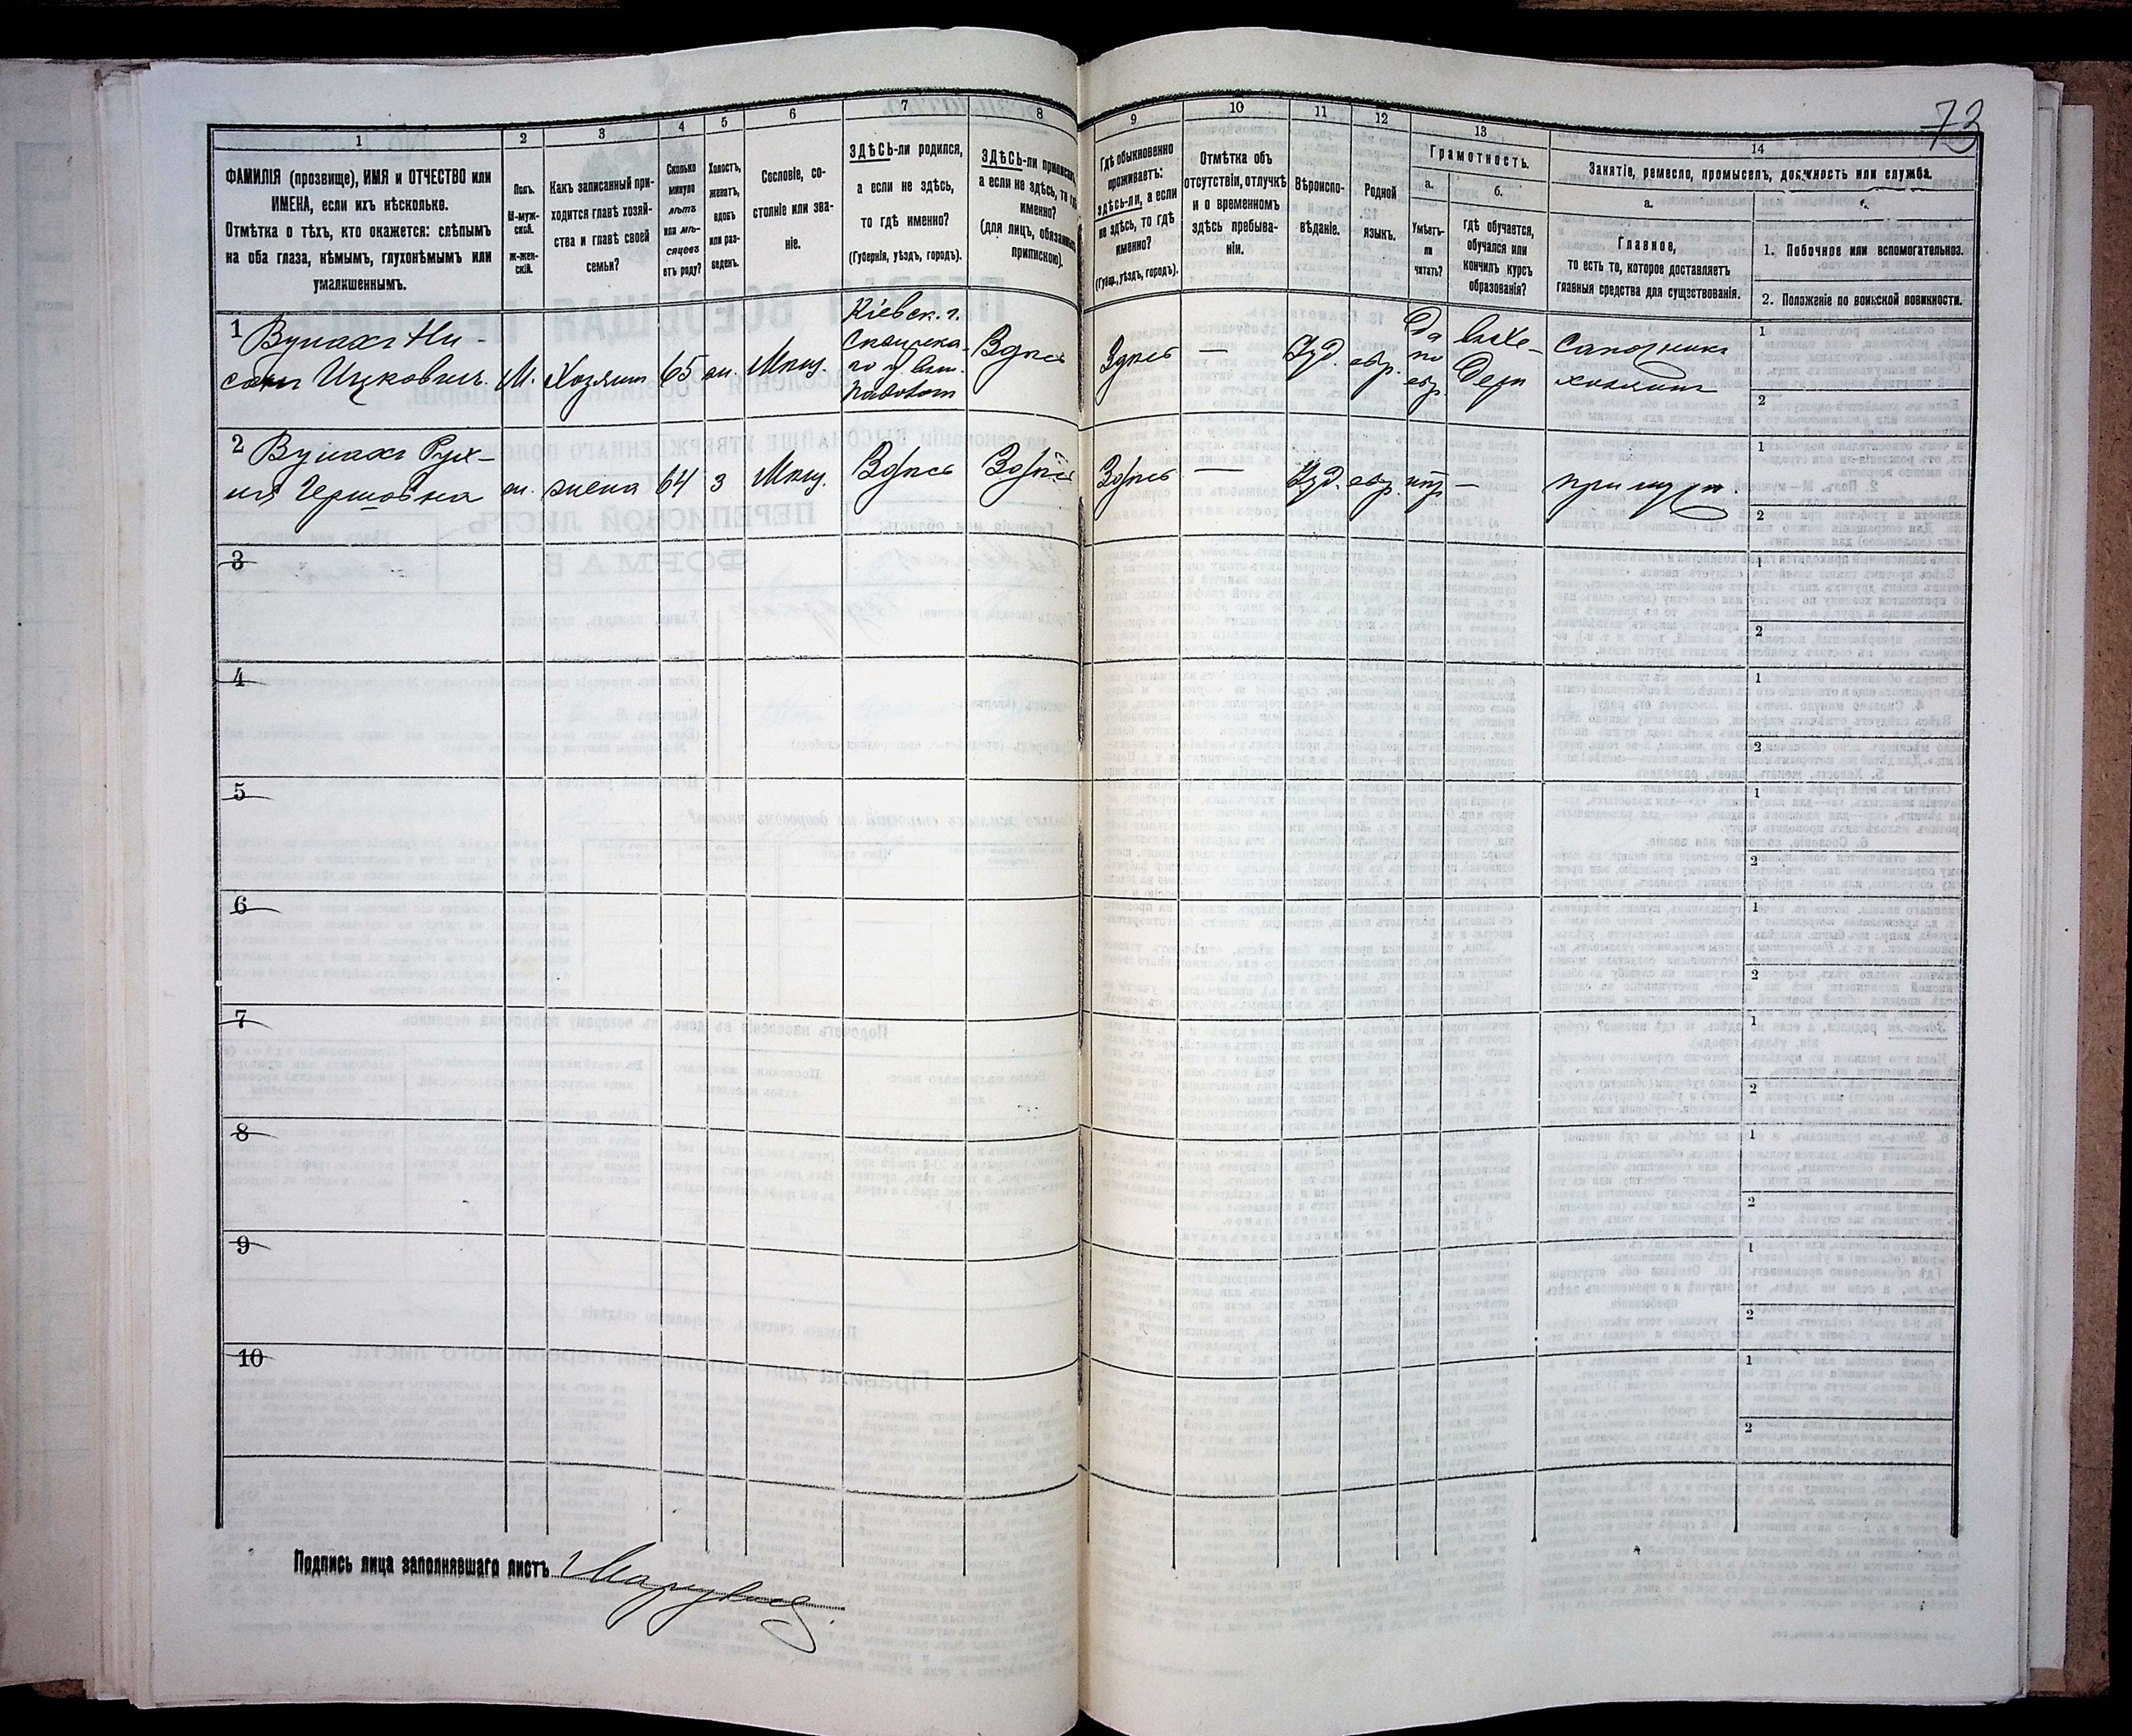 73
1
2
3
4
5
6
7
8
9
10
11
12
13
14
ФАМИЛІЯ (прозвище), ИМЯ и ОТЧЕСТВО или
ИМЕНА, если ихъ нѣсколько.
Отмѣтка о тѣхъ, кто окажется: слѣпымъ
на оба глаза, нѣмымъ, глухонѣмымъ или
умалишеннымъ.
Полъ.
М-муж-
ской.
ж-жен-
скій.
Какъ записанный при-
ходится главѣ хозяй-
ства и главѣ своей
семьи?
Сколько
минуло
лѣтъ
или мѣ-
сяцевъ
отъ роду?
Холостъ,
женатъ,
вдовъ
или раз-
веденъ.
Сословіе, со-
стояніе или зва-
ніе.
ЗДѢСЬ-ли родился,
а если не здѣсь,
то гдѣ именно?
(Губернія, уѣздъ, городъ).
ЗДѢСЬ-ли приписанъ,
а если не здѣсь, то гдѣ
именно?
(для лицъ, обязанныхъ
припискою).
Гдѣ обыкновенно
проживаетъ:
здѣсь-ли, а если
не здѣсь, то гдѣ
именно?
(Губер., уѣздъ, городъ).
Отмѣтка объ
отсутствіи, отлучкѣ
и о временномъ
здѣсь пребыва-
ніи.
Вѣроиспо-
вѣданіе.
Родной
языкъ.
Грамотность.
а.
б.
Умѣетъ-
ли
читать?
Гдѣ обучается,
обучался или
кончилъ курсъ
образованія?
Занятіе, ремесло, промыселъ, должность или служба.
а.
Главное,
то есть то, которое доставляетъ
главныя средства для существованія.
1. Побочное или вспомогательное.
2. Положеніе по воинской повинности.
1
Ни-
Ицковичъ.
М.
Хозяинъ
65
жн.
Мѣщ.
Кіевск. г.
Здѣсь
Здѣсь
—
Іуд.
евр.
Да
по
евр.
въ Хе-
дерѣ
Сапожникъ
хозяинъ
1
2
2
Рух-
ля Гершовна
ж.
жена
64
з
Мѣщ.
Здѣсь
Здѣсь
Здѣсь
—
Іуд.
евр.
нѣт
—
при муж.
1
2
3
1
2
4
1
2
5
1
2
6
1
2
7
1
2
8
1
2
9
1
2
10
1
2
Подпись лица заполнявшаго листъ